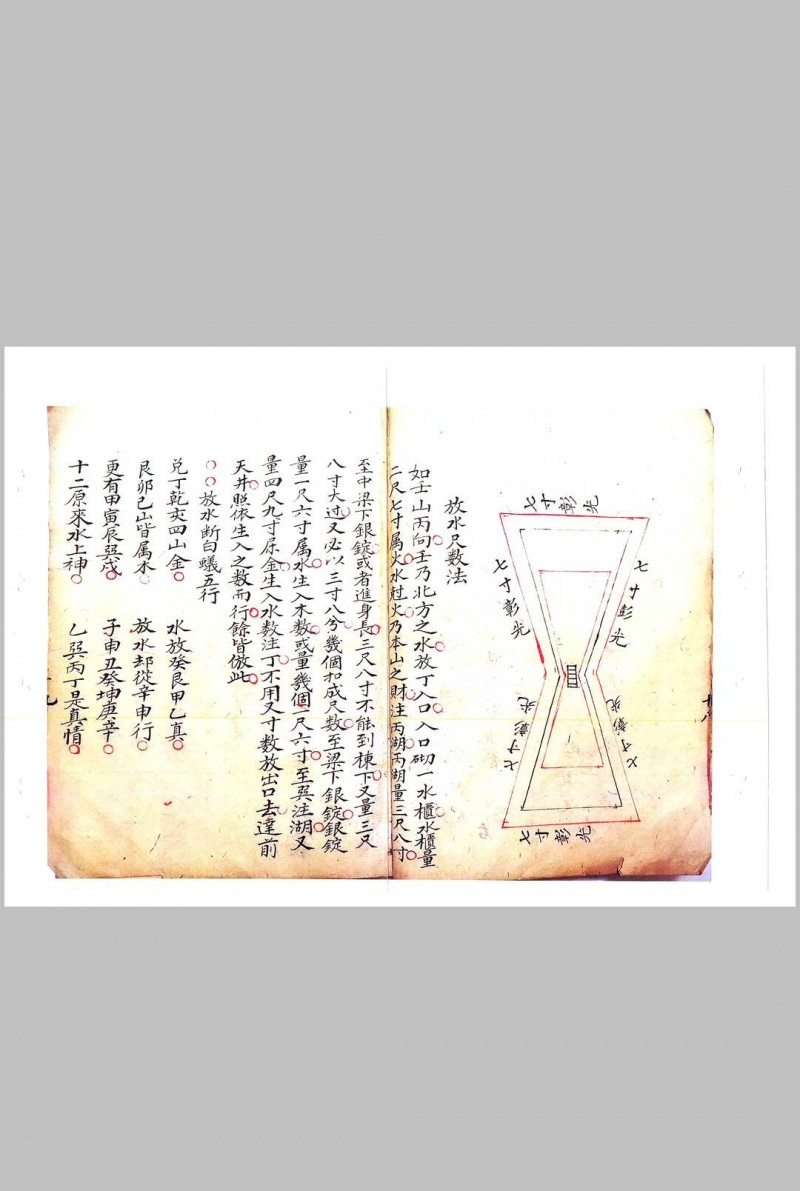 七寸彰光
七寸彰光
七寸彰光
七寸彰光
七寸彰光
七寸彰光
放水尺数法
如壬山丙向壬乃北方之水放丁八口入口砌一水櫃水櫃量
二尺七寸属火水尅火乃本山之財注丙湖丙湖量三尺八寸
至中梁下銀錠或者進身長三尺八寸不能到棟下又量三又
八寸大过又必以三寸八兮幾個扣成尺数至梁下銀錠銀錠
量一尺六寸属水生入木数或量幾個一尺六寸至巽注湖又
量四尺九寸屎金生入水数注丁不用又寸数放出口去達前
天井照依生入之数而行餘皆倣此
○○放水断白蟻五行
兑丁乾亥四山金 水放癸艮甲乙真
艮卯巳山皆属木 放水却從辛申行
更有甲寅辰巽戍 子申丑癸坤庚辛
十二原來水上神 乙巽丙丁是真情